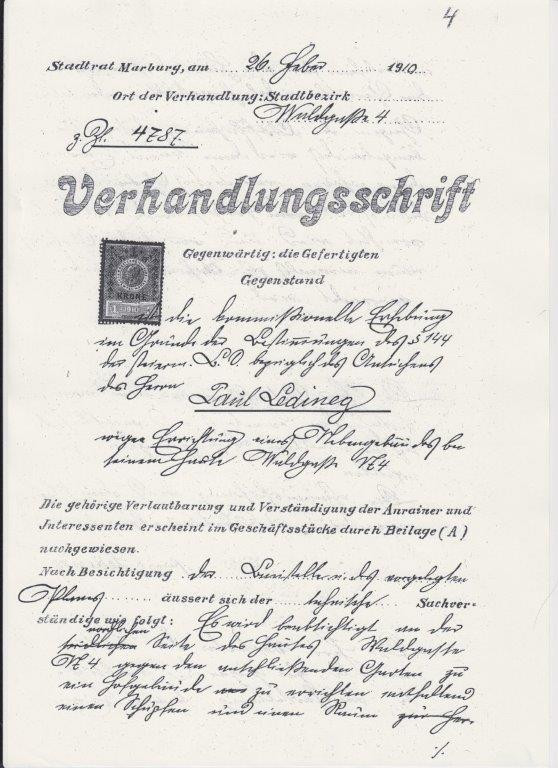 4
Stadtrat Marburg, am 26. Feber 1910
Ort der Verhandlung: Stadtbezirk
Waldgasse 4
z. Zl. 4787.
Verhandlungsschrift
Gegenwärtig: die Gefertigten
Gegenstand
KRONE
1 1910
ist die kommissionelle Erhebung
im Grunde der Bestimmungen des § 144
der steierm. B.O. bezüglich des Ansuchens
des Herrn
Paul Ledineg
wegen Errichtung eines Nebengebäudes bei
seinem Hause Waldgasse N4
Die gehörige Verlautbarung und Verständigung der Anrainer und
Interessenten erscheint im Geschäftsstücke durch Beilage (A)
nachgewiesen.
Nach Besichtigung der Baustelle u. des vorgelegten
Planes äussert sich der technische Sachver-
ständige wie folgt: Es wird beabsichtigt an der
nördlichen
südlichen Seite des Hauses Waldgasse
N4 gegen den anschließenden Garten zu
ein Hofgebäude zu errichten enthaltend
einen Schupfen und einen Raum zur Her-
./.